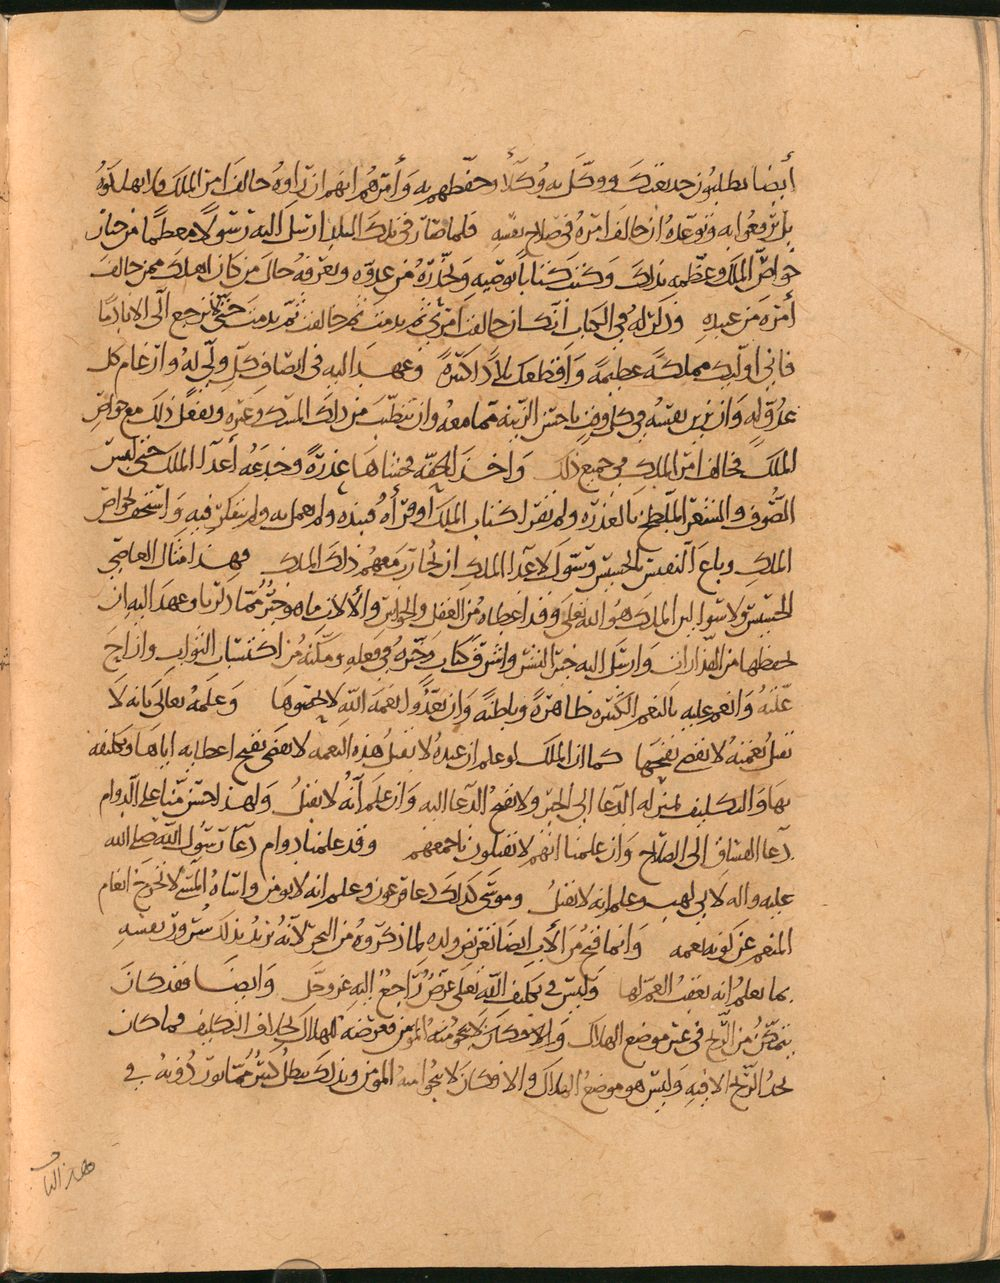 أيضا يطلبون خديعتك ووكّل به وُكَلاء وحفّظهم به وأمرهم انهم ان راوهُ خالف امر الملك فلا يهلكوهُ
بل يرفعوا به وتوعّدهُ ان خالف امرهُ في صلاح نفسه فلما صار في تلك البلد ارسل اليه رسُولًا معظّما من خيار
خواصّ الملك وعظّمه بذلك وكتب كتابًا يوصيه ويحذّرهُ من عدوّه ويعرّفهُ حال من كان اهلك ممن خالف
أمره من عبيدهِ وذكر له في الكتاب أنّك ان خالفت امري ثم ندمت ثم خالفت ثم ندمت حتى ترجع الي الابد
فاني اولّيك مملكةً عظيمةً وأقطعك بلادًا كثيرةً وعهد اليه في انصاف كلّ وليّ لهُ وارغام كل
عدُوّ له وان يزين نفسهُ في كل وقتٍ باحسن الزينة ممّا معهُ وان يتطيّب من ذلك المسك وغيره ويفعل ذلك مع خواصّ
الملك فخالف امر الملك في جميع ذلك واخذ الحُقّه فحشاها عذرةً وخدعهُ أعدآء الملك حتى لبس
الصّوف والشعر الملطّخ بالعذرة ولم يقر لكتاب الملك او قرأهُ فنبذه ولم يعمل به ولم يتفكّر فيه واستخفّ بخواصّ
الملك وباع النفيس بالخسيس وسوّل لاعدا الملك ان يحارب معهم ذلك الملك فهذا مثال العاصي
الخسيس ولا سوا لان الملك هو الله تعلى وقد اعطاه من العقل والحواسّ والالات ما هو خيرٌ ممّا ذكرنا وعهد اليه ان
يحفظها من القذارات وارسل اليه خير البشر واشرف كتاب وخيّره في فعله ومكّنه من اكتساب الثواب وازاح
علّته وانعم عليه بالنعم الكثيره ظاهرةً وباطنةً وان تعدّوا نعمة الله لا تحصُوها وعلمهُ تعالى بانه لا
يقبل نعمته لا يقضي بقبحها كما ان الملك لو علم ان عبده لا يقبل هذه النعمه لا يقضي بقبح اعطايه اياها وتكليفه
بها والتكليف بمنزله الدعا الى الخير ولا يقبح الدعا اليه وان علم أنّه لا يقبلُ ولهذا يحسن منّا على الدوام
دعا الفساق الى الصلاح وان علمنا انهم لا يقبلون باجمعهم وقد علمنا دوام دعآ رسُول الله صلى الله
عليه واله لابي لهب وعلم انه لا يقبلُ وموسى كذلك دعا فرعون وعلم انه لا يومن واساهُ المسي لا تخرج انعام
المنعم عن كونه نعمه وانما قبح من الأب ايضا تعريض ولده لما ذكروهُ من البحر لانّه يريد بذلك سُرور نفسه
بما يعلم انه يعقب الغمّ لها وليس في تكليف الله تعلى غرضٌ راجعٌ اليه عز وجل وايضا فقد كان
يتمكّن من الرّبح في غير موضع الهلاك والا فكان لا ينجو منه المومن فعرضه للهلاك بخلاف التكليف فما كان
يجدُ الرّبح الا فيه وليس هو موضع الهلاك والا فكان لا ينجوا منه المومن وبذلك يبطل كثيرٌ ممّا يوردُونه في